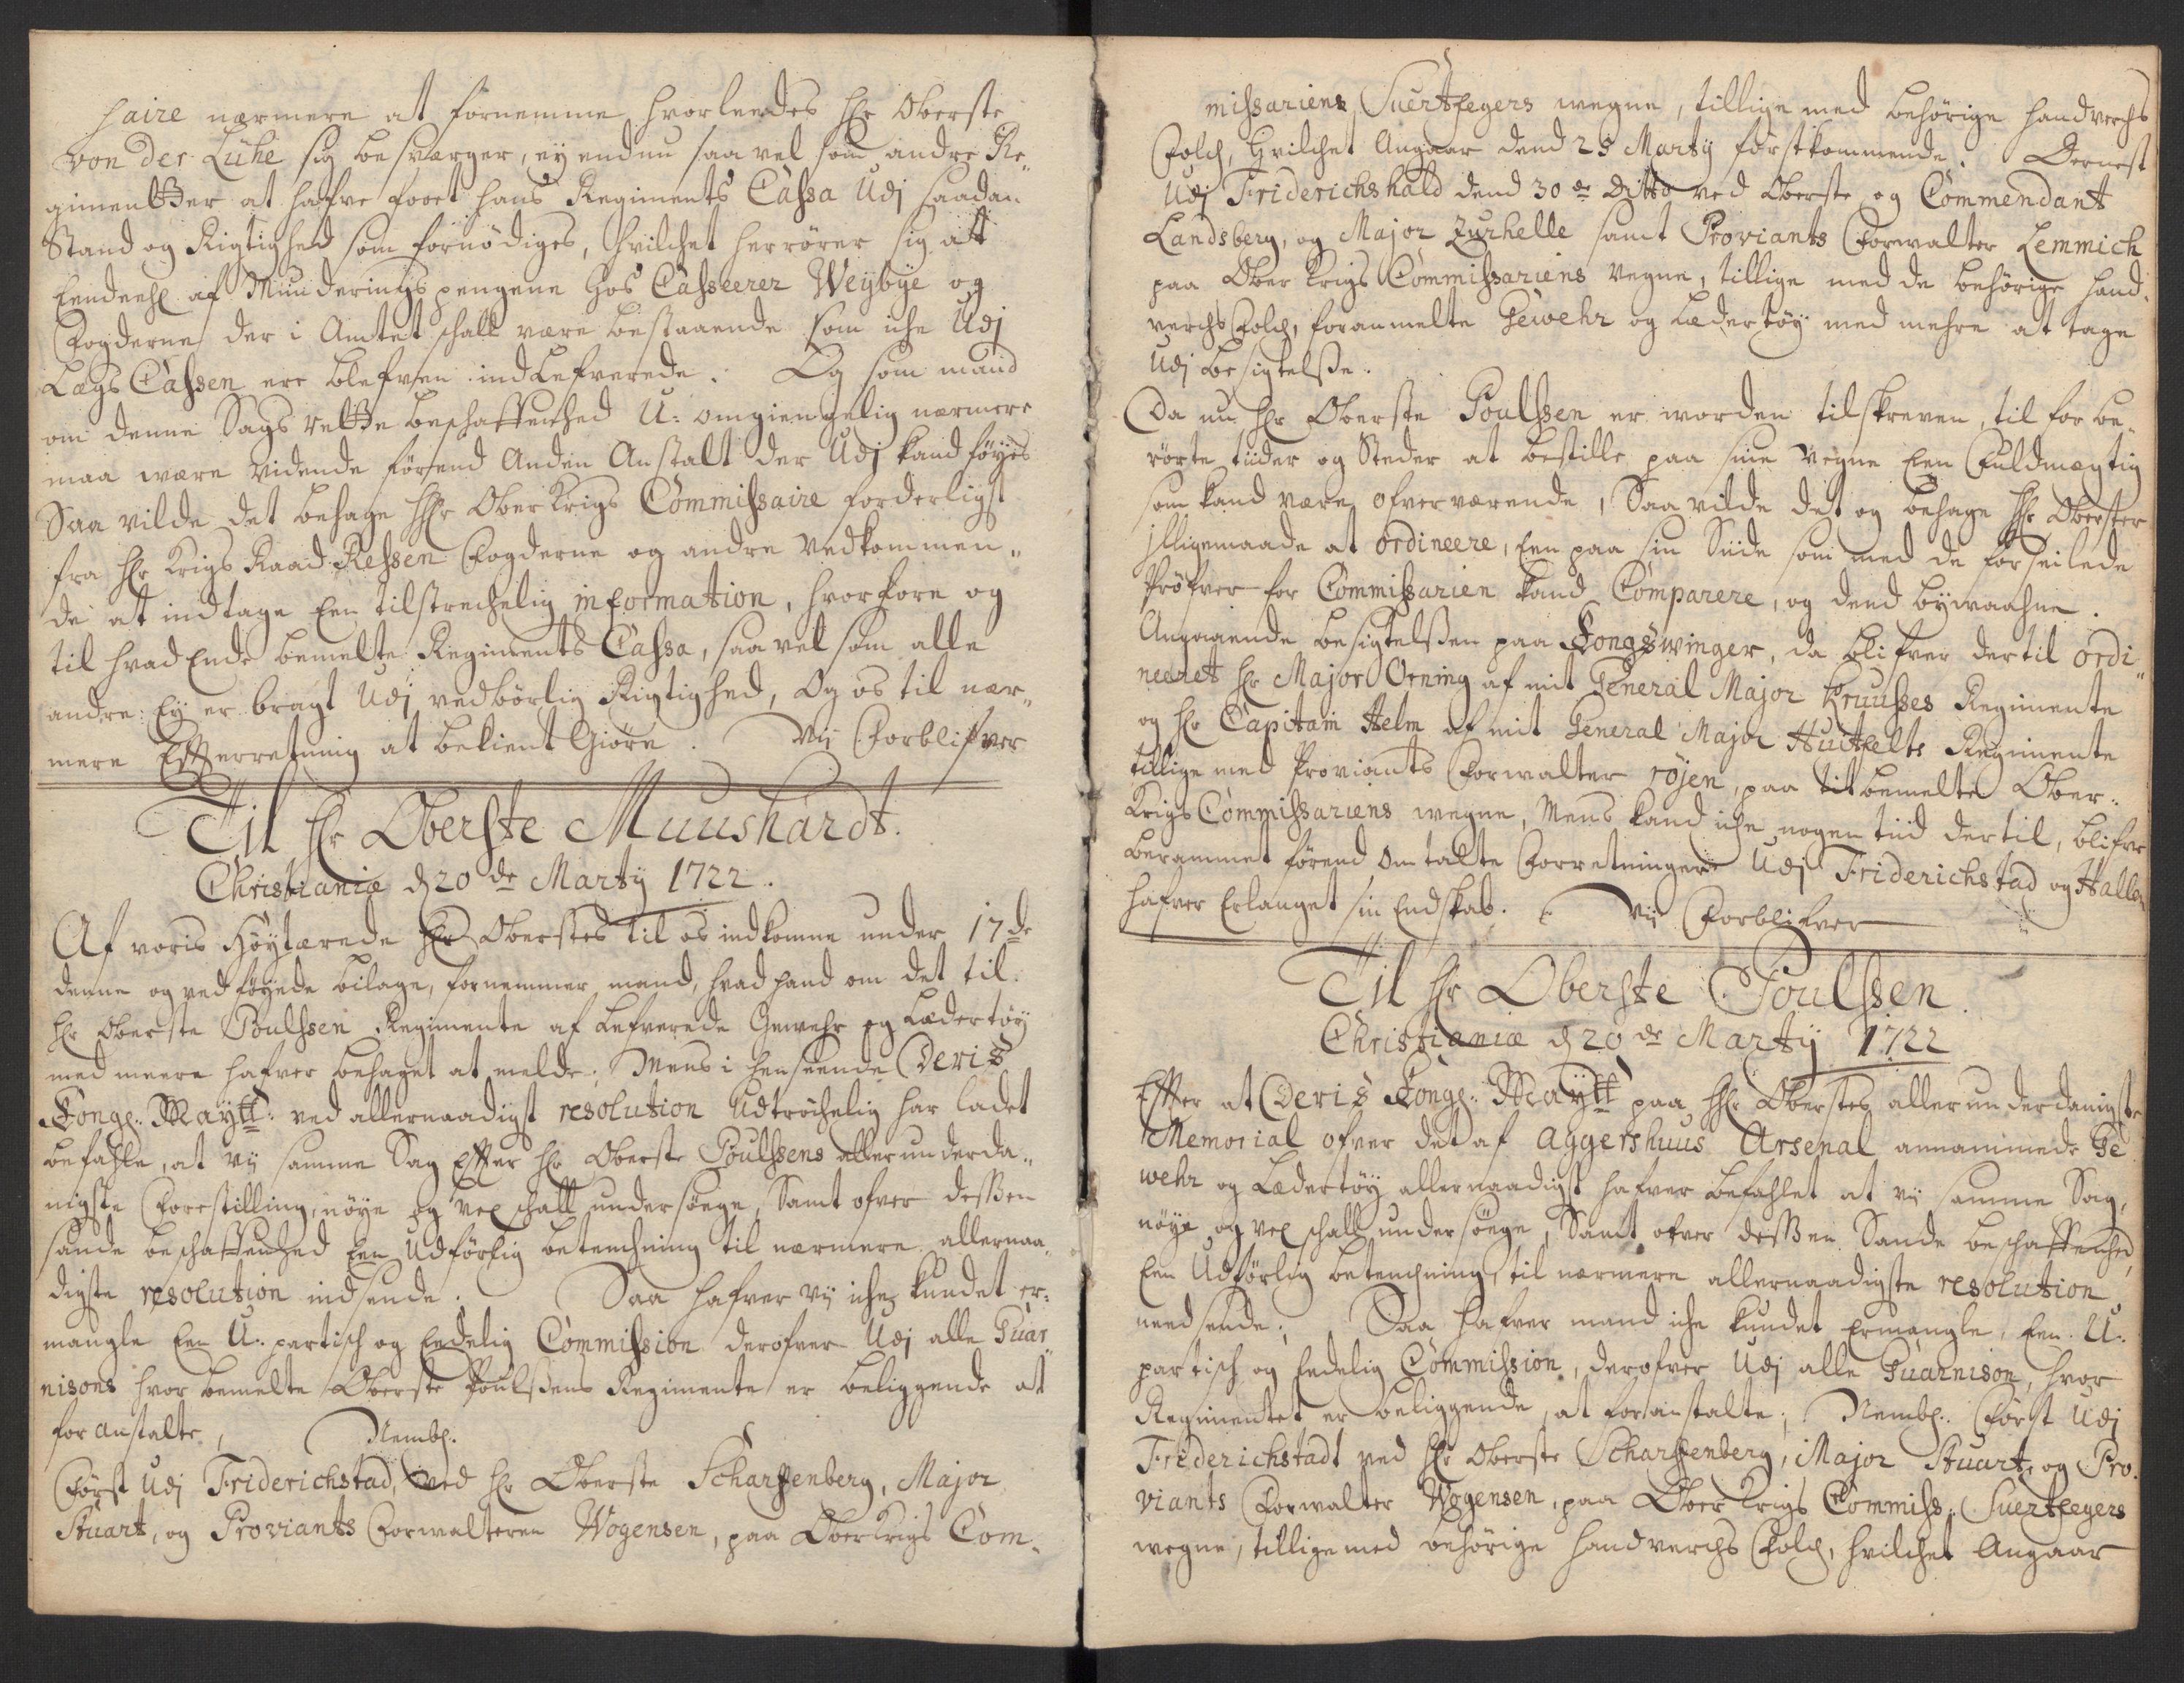 saire nærmere at fornemme hvorleedes Hr Oberste
von der Lühe sig besværger, ey endnu saa vel som andre Re„
gimentter at hafve faaet hans Regiments Cassa Udj saadan
Stand og Rigtighed som fornødiges, hvilchet herrører sig att
Eendeehl af Munderings pengene hos Casseerer Weybye og
Fogderne der i Amtet schall være bestaaende som iche Udj
Lægs Cassen ere blefven indlefverede. Og som mand
om denne Sags rette beschaffenhed U: omgiengelig nærmere
maa være vidende førend Anden Anstalt der Udj kand føyes
Saa vilde det behage Hr Ober Krigs Commissaire forderligst
fra Hr Krigs Raad Ressen Fogderne og andre Vedkommen„
de at indtage Een tilstrechelig information, hvorfore og
til hvad Ende bemelte Regiments Cassa, saa vel som alle
andre: Ey er bragt Udj vedbørlig Rigtighed, Og os til nær„
mere Efterretning at bekient Giøre. Vij Forblifver
Til Hr Oberste Muushardt.
Christiania d 20de Martij 1722.
Af voris Høytærede Hr Oberstes til os indkomne under 17de
denne og ved føyede bilage, fornemmer mand, hvad hand om det til
Hr Oberste Poulssen Regimente af Lefverede Gewehr og Lædertøy
med meere hafver behaget at melde; Mens i henseende Deris
Kongl: Maytt: ved allernaadigst resolution Udtrøchelig har ladet
befahle, at vij samme Sag Efter Hr Oberste Poulssens allerunderda„
nigste Forestilling, nøye og vel schall undersøge, Samt ofver dessen
sande beschaffenhed Een Udførlig betenchning til nærmere allernaa„
digste resolution indsende. Saa hafver vij iche kundet er„
mangle Een U: partisch og Endelig Commission derofver Udj alle Guar„
nisons hvor bemelte Oberste Poulssens Regimente er beliggende at
for anstalte, Nembl.
Først Udj Friderichstad, ved Hr Oberste Scharffenberg, Major
Stuart, og Proviants Forwalteren Wogensen, paa Ober Krigs Com„
missariens Suertfegers wegne, tillige med behørige handverchs
Folch, Hvilchet Angaar dend 25 Martij førstkommende. Dernest
Udj Friderichshald dend 30de Ditto ved Oberste og Commendant
Landsberg, og Major Zurhelle samt Proviants Forwalter Lemmich
paa Ober Krigs Commissariens Vegne, tillige med de behørige hand„
verchs Folch, foranmelte Gewehr og Lædertøy med mehre at tage
Udj besigtelsse.
Da nu Hr Oberste Poulssen er worden tilskreven, til for be„
rørte tiider og Steder at bestille paa sine Vegne Een Fuldmægtig
som kand være ofverværende, Saa vilde det og behage Hr Oberster
Jlligemaade at ordineere, Een paa sin Siide som med de forseilede
Prøfver for Commissarien kand Comparere, og dend bijwaahne.
Angaaende besigtelssen paa Kongswinger, da blifver dertil ordi„
neeret Hr Major Orning af mit General Major Kruusses Regimente
og Hr Capitain Helm af mit General Major Huitfelts Regimente
tillige med Proviants Forwalter röjen, paa titbemelte Ober„
Krigs Commissariens wegne, Mens kand iche nogen tiid dertil, blifve
berammet førend Omtalte Forretninger Udj Friderichstad og Hallen
hafver Erlanget sin Endskab. Vij Forblifver
Til Hr Oberste Poulssen.
Christianiæ d 20de Martij 1722
Efter at Deris Kongl: Maytt paa Hr Oberstes allerunderdanigste
Memorial ofver det af Aggershuus Arsenal annammede Ge
wehr og Lædertøy allernaadigst hafver befahlet at vij samme Sag,
nøye og vel schall undersøge, Samt ofver dessen Sande beschaffenhed,
Een Udførlig betenchning, til nærmere allernaadigste resolution
needsende; Saa hafver mand iche kundet Ermangle, Een U:
partisch og Endelig Commission, derofver Udj alle Guarnison, hvor
Regimentet er beliggende, at foranstalte; Nembl: Først Udj
Friderichstadt ved Hr Oberste Scharffenberg, Major Stuart, og Pro„
viants Forwalter Wogensen, paa Ober Krigs Commiss: Suertfegers
wegne, tillige med behørige handverchs Folch, hvilchet Angaar